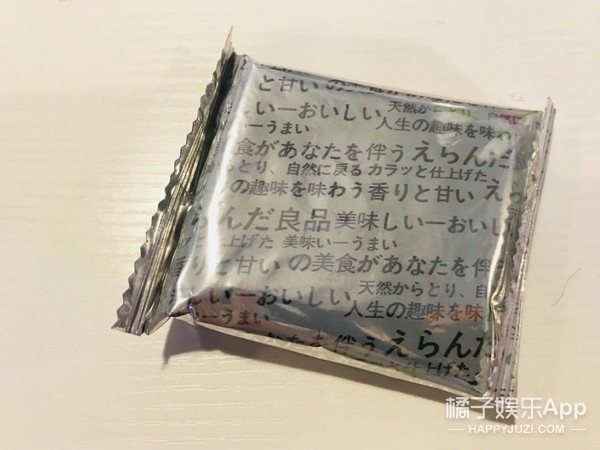 と甘い の美食が
しいーおいしい 天然から
いーうまい 人生の趣味を味わ
美食があなたを伴う えらんだ
らっとり、自然に戻る カラッと仕上げた
の趣味を味わう 香りと甘い えっ
らんだ良品 美味しいーおいし
と仕上げた 美味いーうまい
香りと甘い の美食があなたを伴
しいーおいしい 天然からとり、自
いーうまい 人生の趣味を味
あなたを伴う えらんだ
と仕上げた
橘子娱乐App
HAPPYJUZI.COM